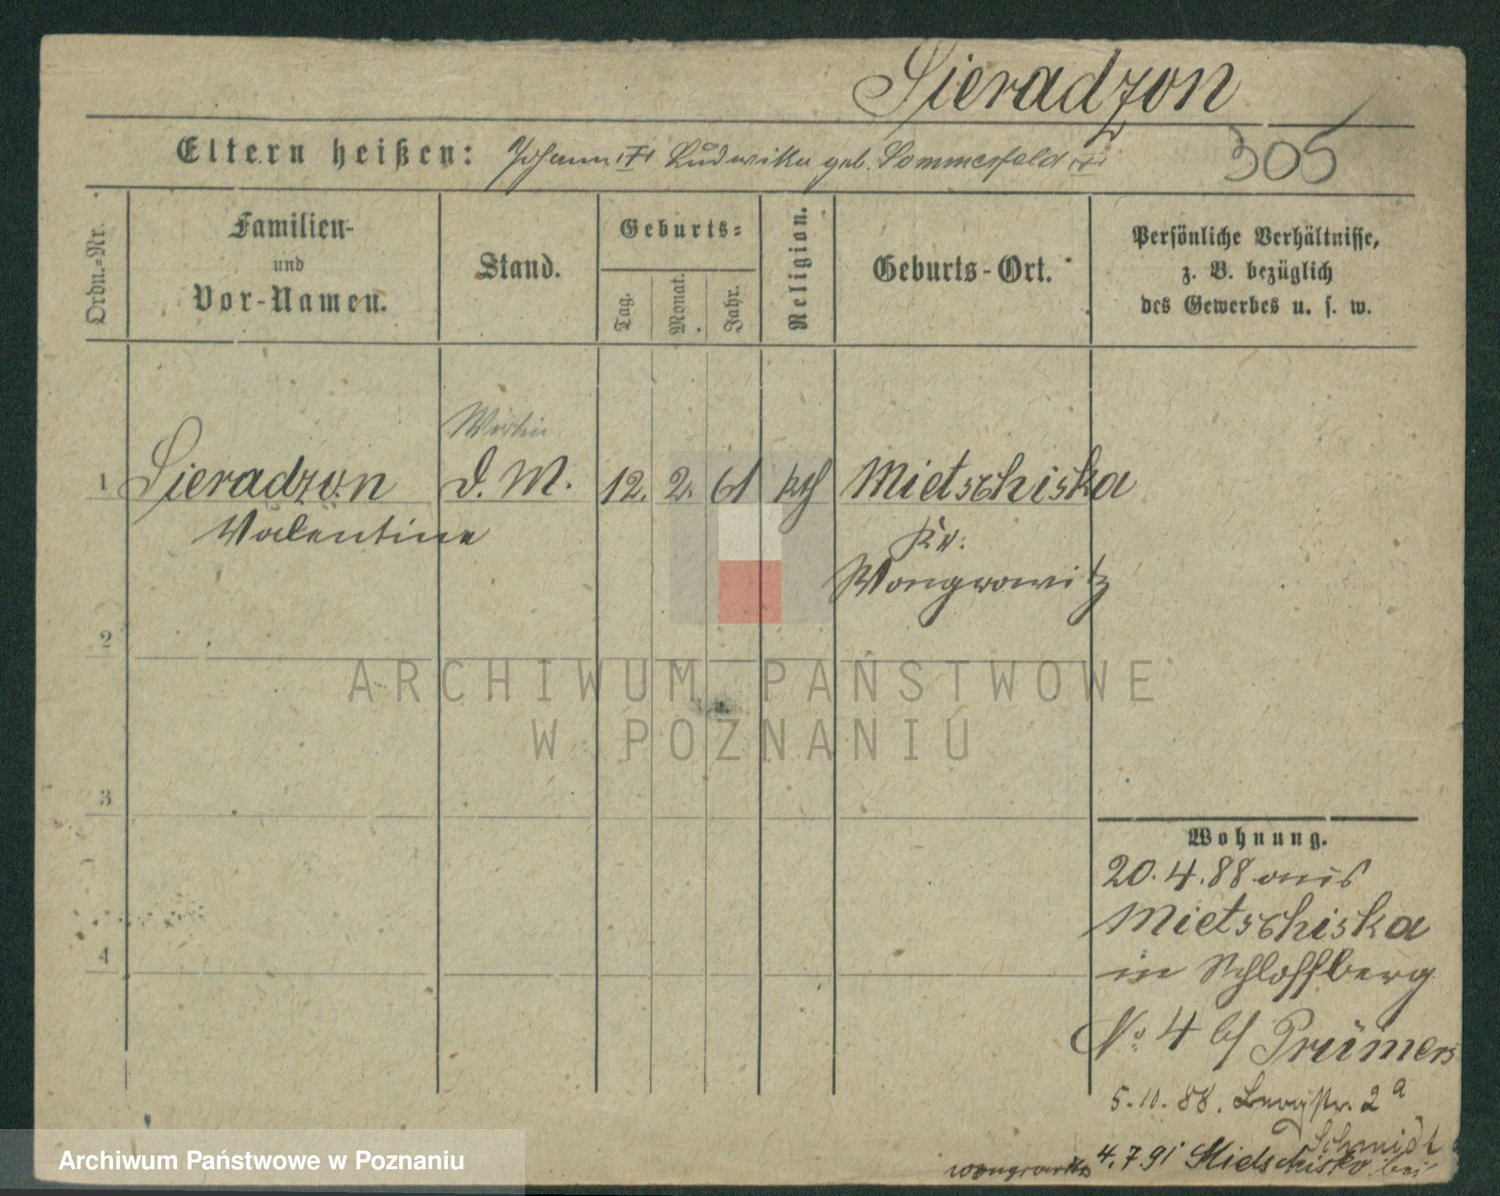 Sieradzon
Eltern heißen: Johann † Ludwika geb. Sommerfeld †
305
Ordn.-Nr.
Familien-
und
Vor-Namen.
Stand.
Geburts-
Tag.
Monat.
Jahr.
Religion.
Geburts-Ort.
Persönliche Verhältnisse,
z. B. bezüglich
des Gewerbes u. s. w.
Wirtin
1 Sieradzon D. M. 12. 2. 61 kth Mietschiska
Valentine Kr.
Wongrowitz
2
ARCHIWUM PAŃSTWOWE
W POZNANIU
3
Wohnung.
20.4.88 aus
Mietschiska
4
in Schloßberg
No 4 b/ Prümers
5.10.88. Bergstr. 2a
Schmidt
4.7.91 Mietschisko bei
Wongrowitz
Archiwum Państwowe w Poznaniu